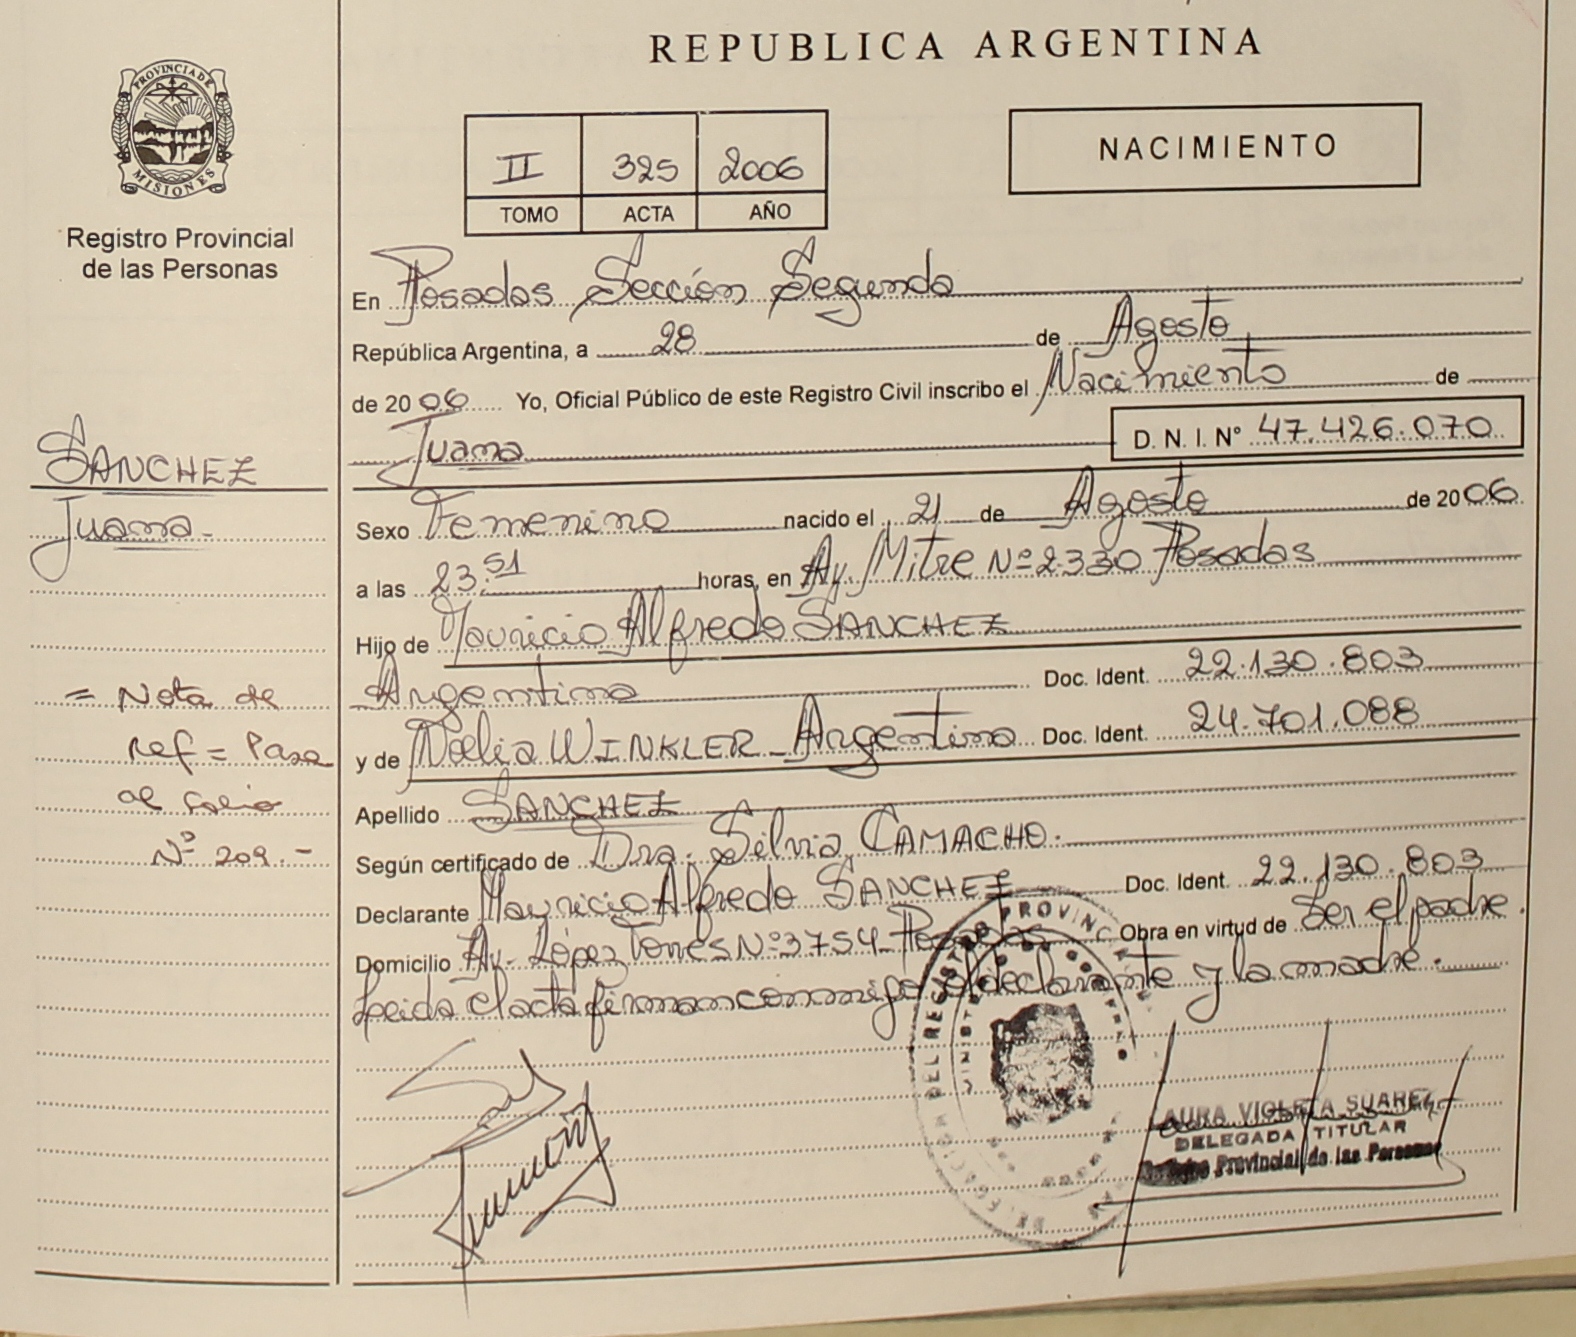 REPUBLICA ARGENTINA
PROVINCIA DE
MISIONES
Registro Provincial
de las Personas
II 325 2006
TOMO ACTA AÑO
NACIMIENTO
En Posadas Sección Segunda
República Argentina, a 28 de Agosto
de 2006 Yo, Oficial Público de este Registro Civil inscribo el Nacimiento de
Juana D. N. I. N° 47.426.070
SANCHEZ
Juana.-
Sexo Femenino nacido el 21 de Agosto de 2006
a las 23:51 horas, en Av. Mitre Nº 2330 Posadas
Hijo de Mauricio Alfredo SANCHEZ
Argentino Doc. Ident. 22.130.803
y de Noelia WINKLER - Argentina Doc. Ident. 24.701.088
= Nota de
ref = Pasa
al folio
Nº 209.-
Apellido SANCHEZ
Según certificado de Dra. Silvia CAMACHO.
Declarante Mauricio Alfredo SANCHEZ Doc. Ident. 22.130.803
Domicilio Av. López Torres Nº 3754 - Posadas Obra en virtud de Ser el padre.
Leida el acta firman conmigo el declarante y la madre.
DELEGACION DEL REGISTRO PROVINCIAL
MINISTERIO DE GOBIERNO
LAURA VIOLETA SUAREZ
DELEGADA TITULAR
Registro Provincial de las Personas